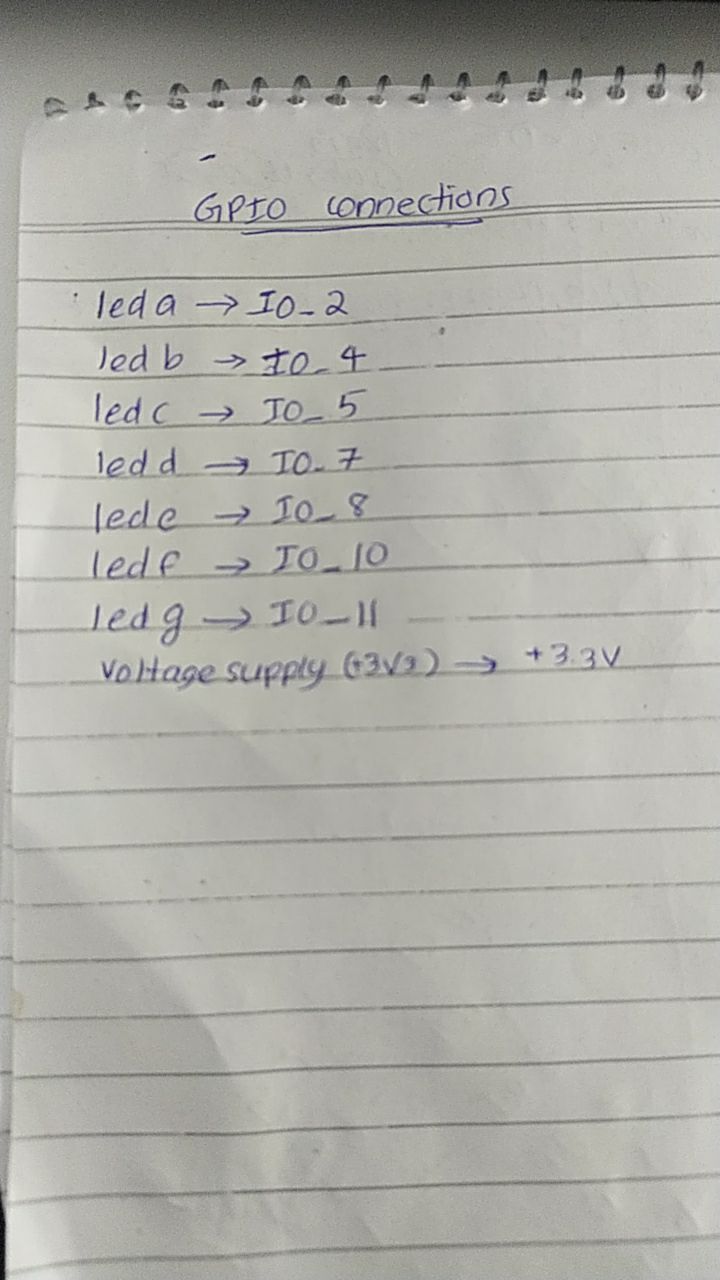 GPIO connections
led a → IO_2
led b → IO_4
led c → IO_5
led d → IO_7
led e → IO_8
led f → IO_10
led g → IO_11
Voltage supply (+3V3) → +3.3V